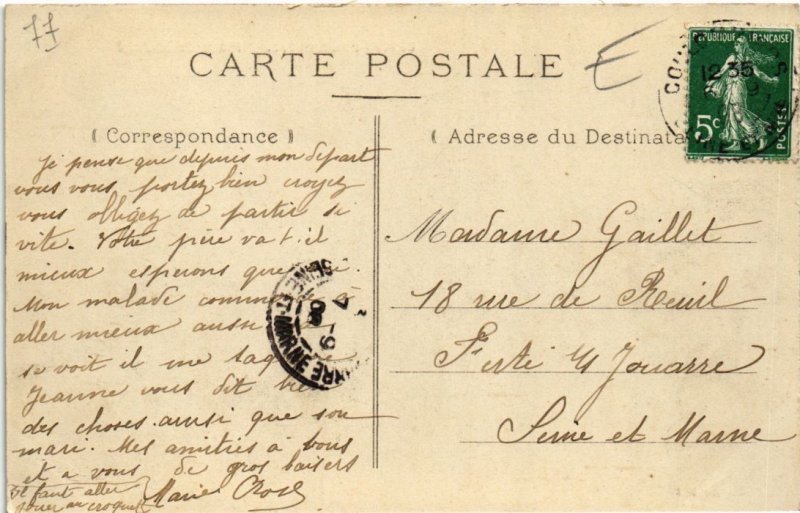 77
E
CARTE POSTALE
RÉPUBLIQUE FRANÇAISE
12 35
5c
POSTES
( Correspondance )
( Adresse du Destinata
je pense que depuis mon départ
vous vous portez bien croyez
vous obligez de partir si
vite. Votre père va t-il
mieux esperons que
Mon malade comm à
aller mieux aussi
se voit il me
Jeanne vous dit bi
des choses ainsi que son
mari. Mes amitiés à tous
et a vous de gros baisers
Marie
Il faut aller
jouer au croquet
SEINE-ET-MARNE
Madame Gaillet
18 rue de Reuil
Ferté s/s Jouarre
Seine et Marne